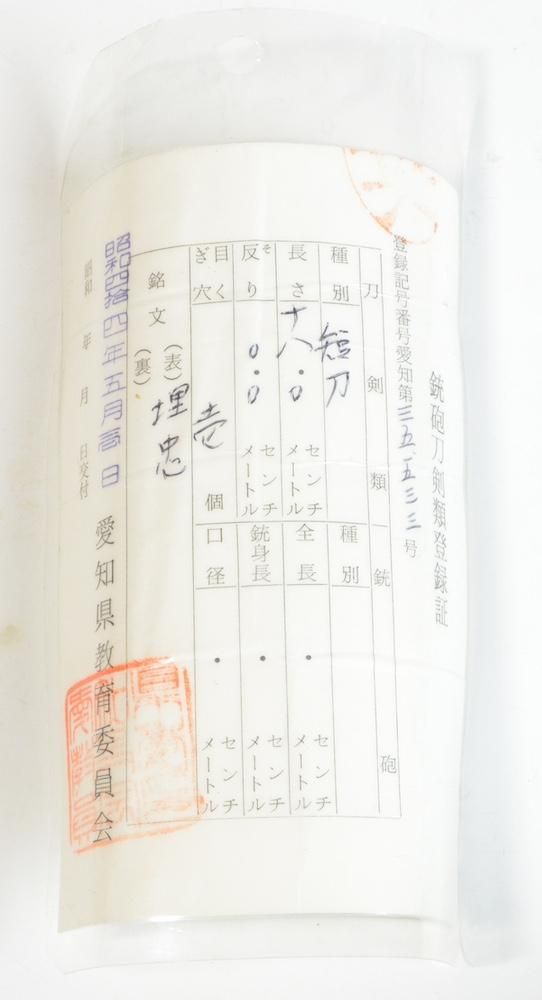 銃砲刀剣類登録証
登録記号番号愛知第三五五三三号
刀剣類
種別 短刀
長さ 十八.0 センチメートル
反り そ 0.0 センチメートル
目くぎ穴 壱 個
銘文 (表) 埋忠
(裏)
銃砲
種別
全長 . センチメートル
銃身長 . センチメートル
口径 . センチメートル
昭和四拾四年五月 日
昭和 年 月 日交付
愛知県教育委員会